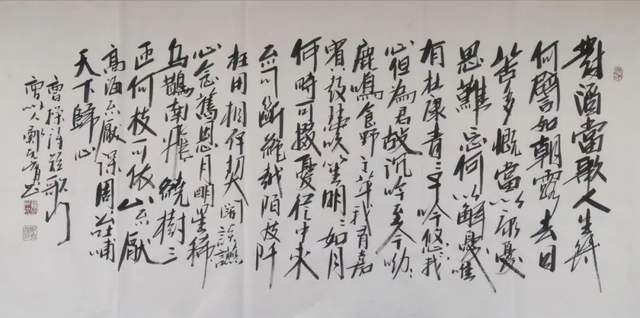 對酒當歌人生幾
何譬如朝露去日
苦多慨當以慷憂
思難忘何以解憂惟
有杜康青〻子吟悠我
心但為君故沉吟至今呦〻
鹿鳴食野之苹我有嘉
賓鼓瑟吹笙明〻如月
何時可掇憂從中來
不可斷絕越陌度阡
枉用相存契闊談讌
心念舊恩月明星稀
烏鵲南飛繞樹三
匝何枝可依山不厭
高海不厭深周公吐哺
天下歸心
曹操詩短歌行